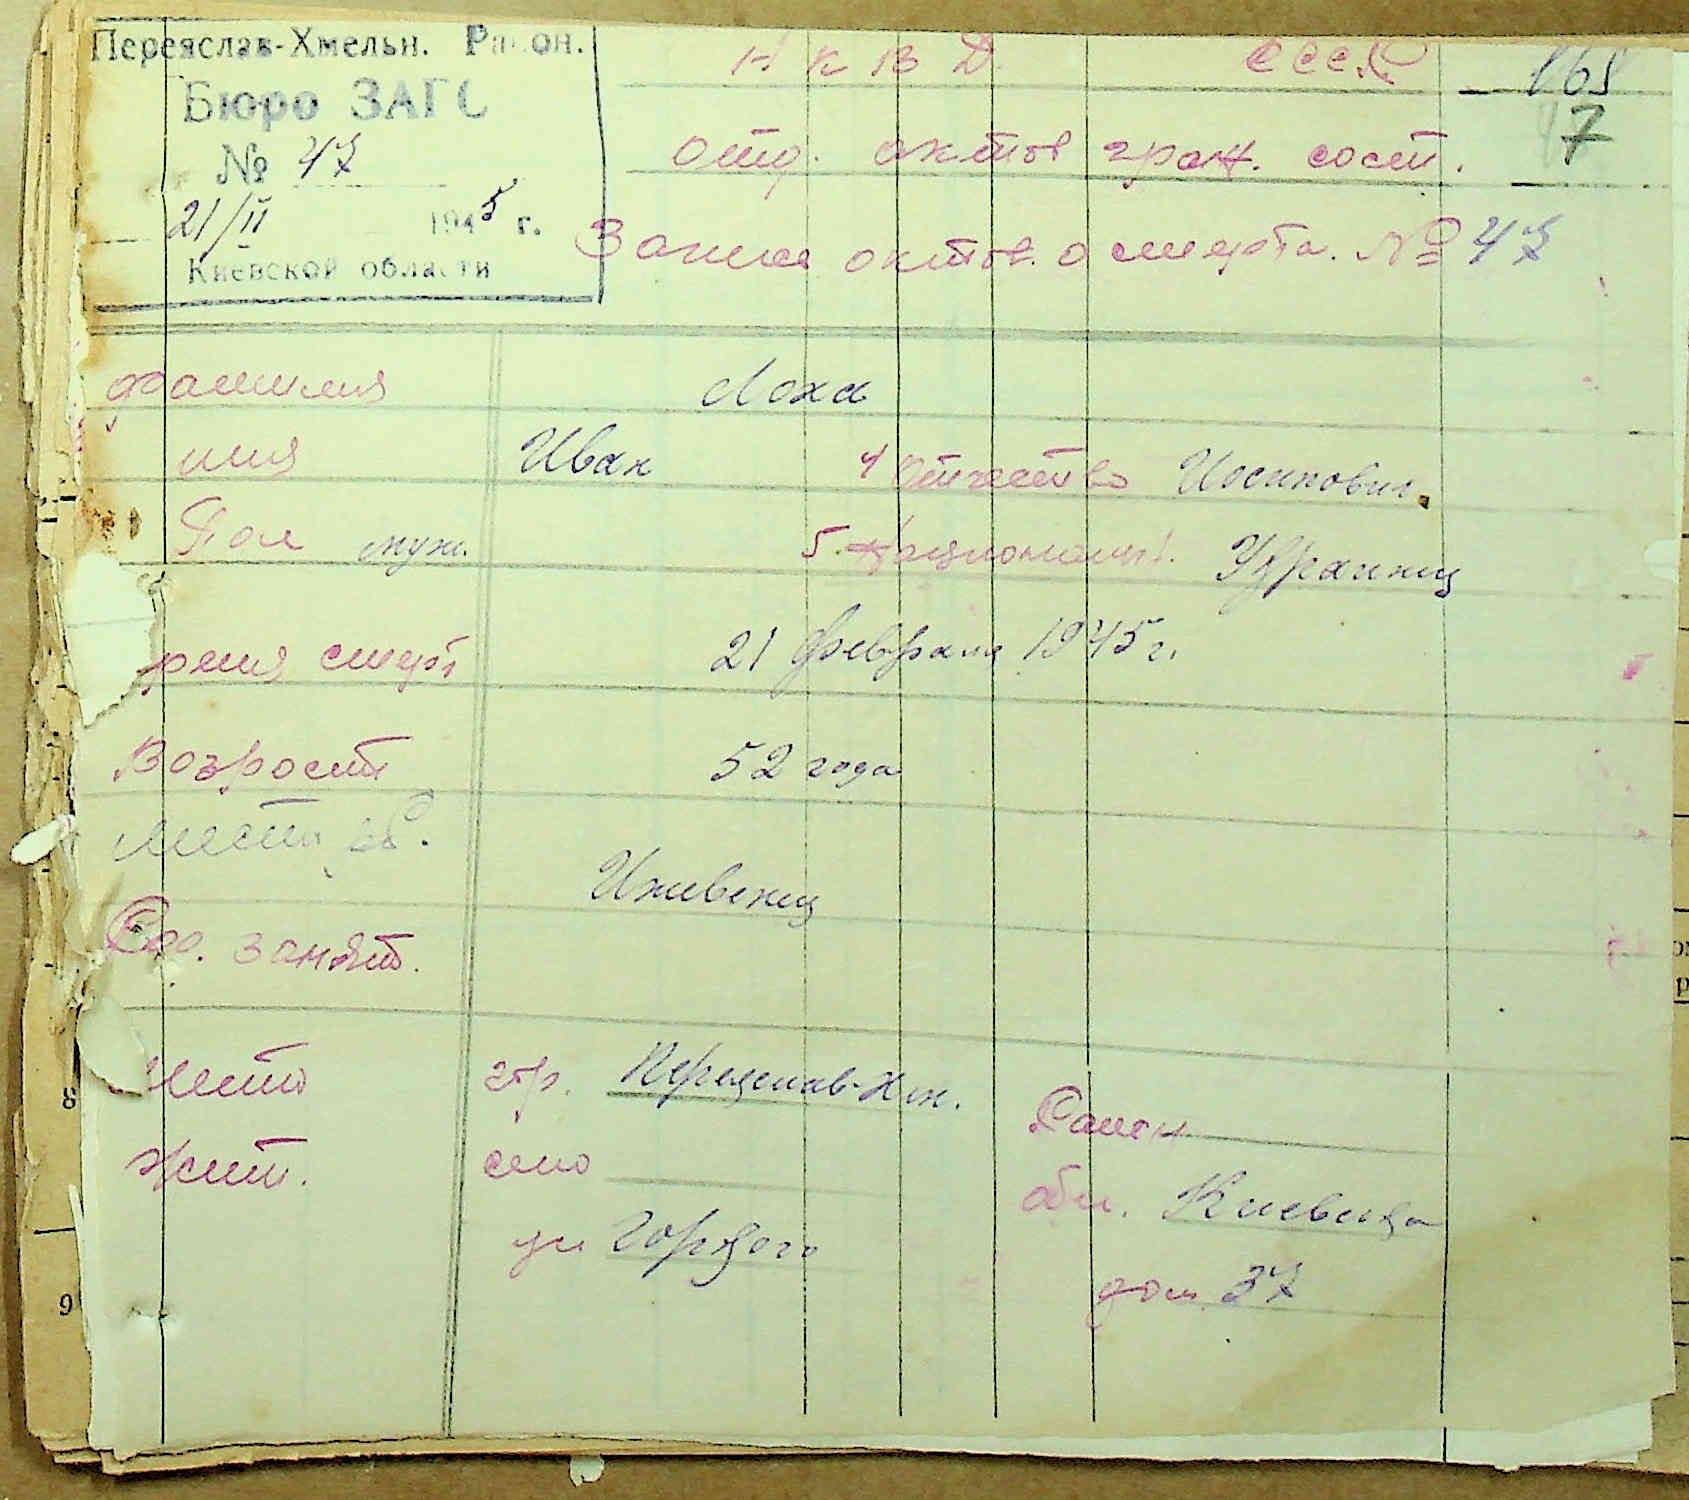 Переяслав-Хмельн. Район.
Бюро ЗАГС
№ 47
21/II 1945 г.
Киевской области
Н К В Д СССР
168
7
отд. актов граж. сост.
Запись актов о смерти. № 47
Фамилия Лоха
имя Иван 4 Отчество Иосипович.
Пол муж. 5. Национальн. Украинец
ремя смерт 21 февраля 1945 г.
Возраст 52 года
Место
Иживенец
занят.
место гор. Переяслав-Хм. Район
жит. село обл. Киевская
ул Горького дом 37
8
9